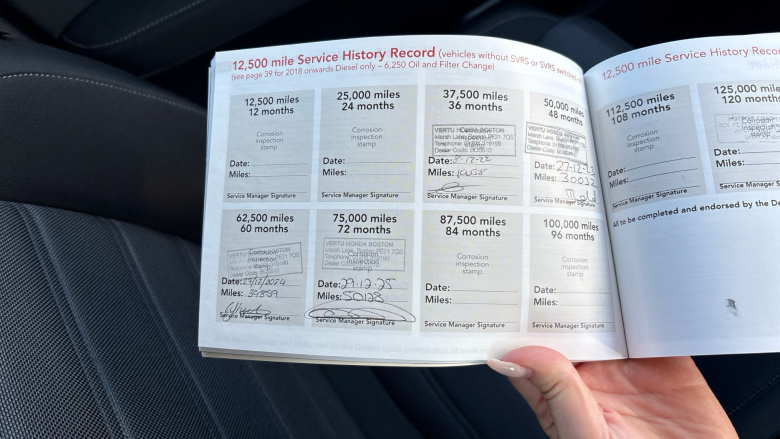 12,500 mile Service History Record (vehicles without SVRS or SVRS switched
(see page 39 for 2018 onwards Diesel only – 6,250 Oil and Filter Change)
12,500 miles
12 months
Corrosion
inspection
stamp
Date:
Miles:
Service Manager Signature
25,000 miles
24 months
Corrosion
inspection
stamp
Date:
Miles:
Service Manager Signature
37,500 miles
36 months
VERTU HONDA BOSTON
Marsh Lane, Boston PE21 7QS
Date: 8-12-22
Miles:
Service Manager Signature
50,000 miles
48 months
Date: 27-12-
Miles: 30032
Service Manager Signature
62,500 miles
60 months
VERTU HONDA BOSTON
Corrosion
inspection
stamp
Date: 19/12/2024
Miles:
Service Manager Signature
75,000 miles
72 months
VERTU HONDA BOSTON
Marsh Lane, Boston PE21 7QS
Corrosion
inspection
stamp
Date: 29-12-25
Miles: 50128
Service Manager Signature
87,500 miles
84 months
Corrosion
inspection
stamp
Date:
Miles:
Service Manager Signature
100,000 miles
96 months
Corrosion
inspection
stamp
Date:
Miles:
Service Manager Signature
12,500 mile Service History
112,500 miles
108 months
Corrosion
inspection
stamp
Date:
Miles:
Service Manager Signature
125,000 miles
120 months
Corrosion
inspection
stamp
Date:
Miles:
Service Manager
All to be completed and endorsed by the